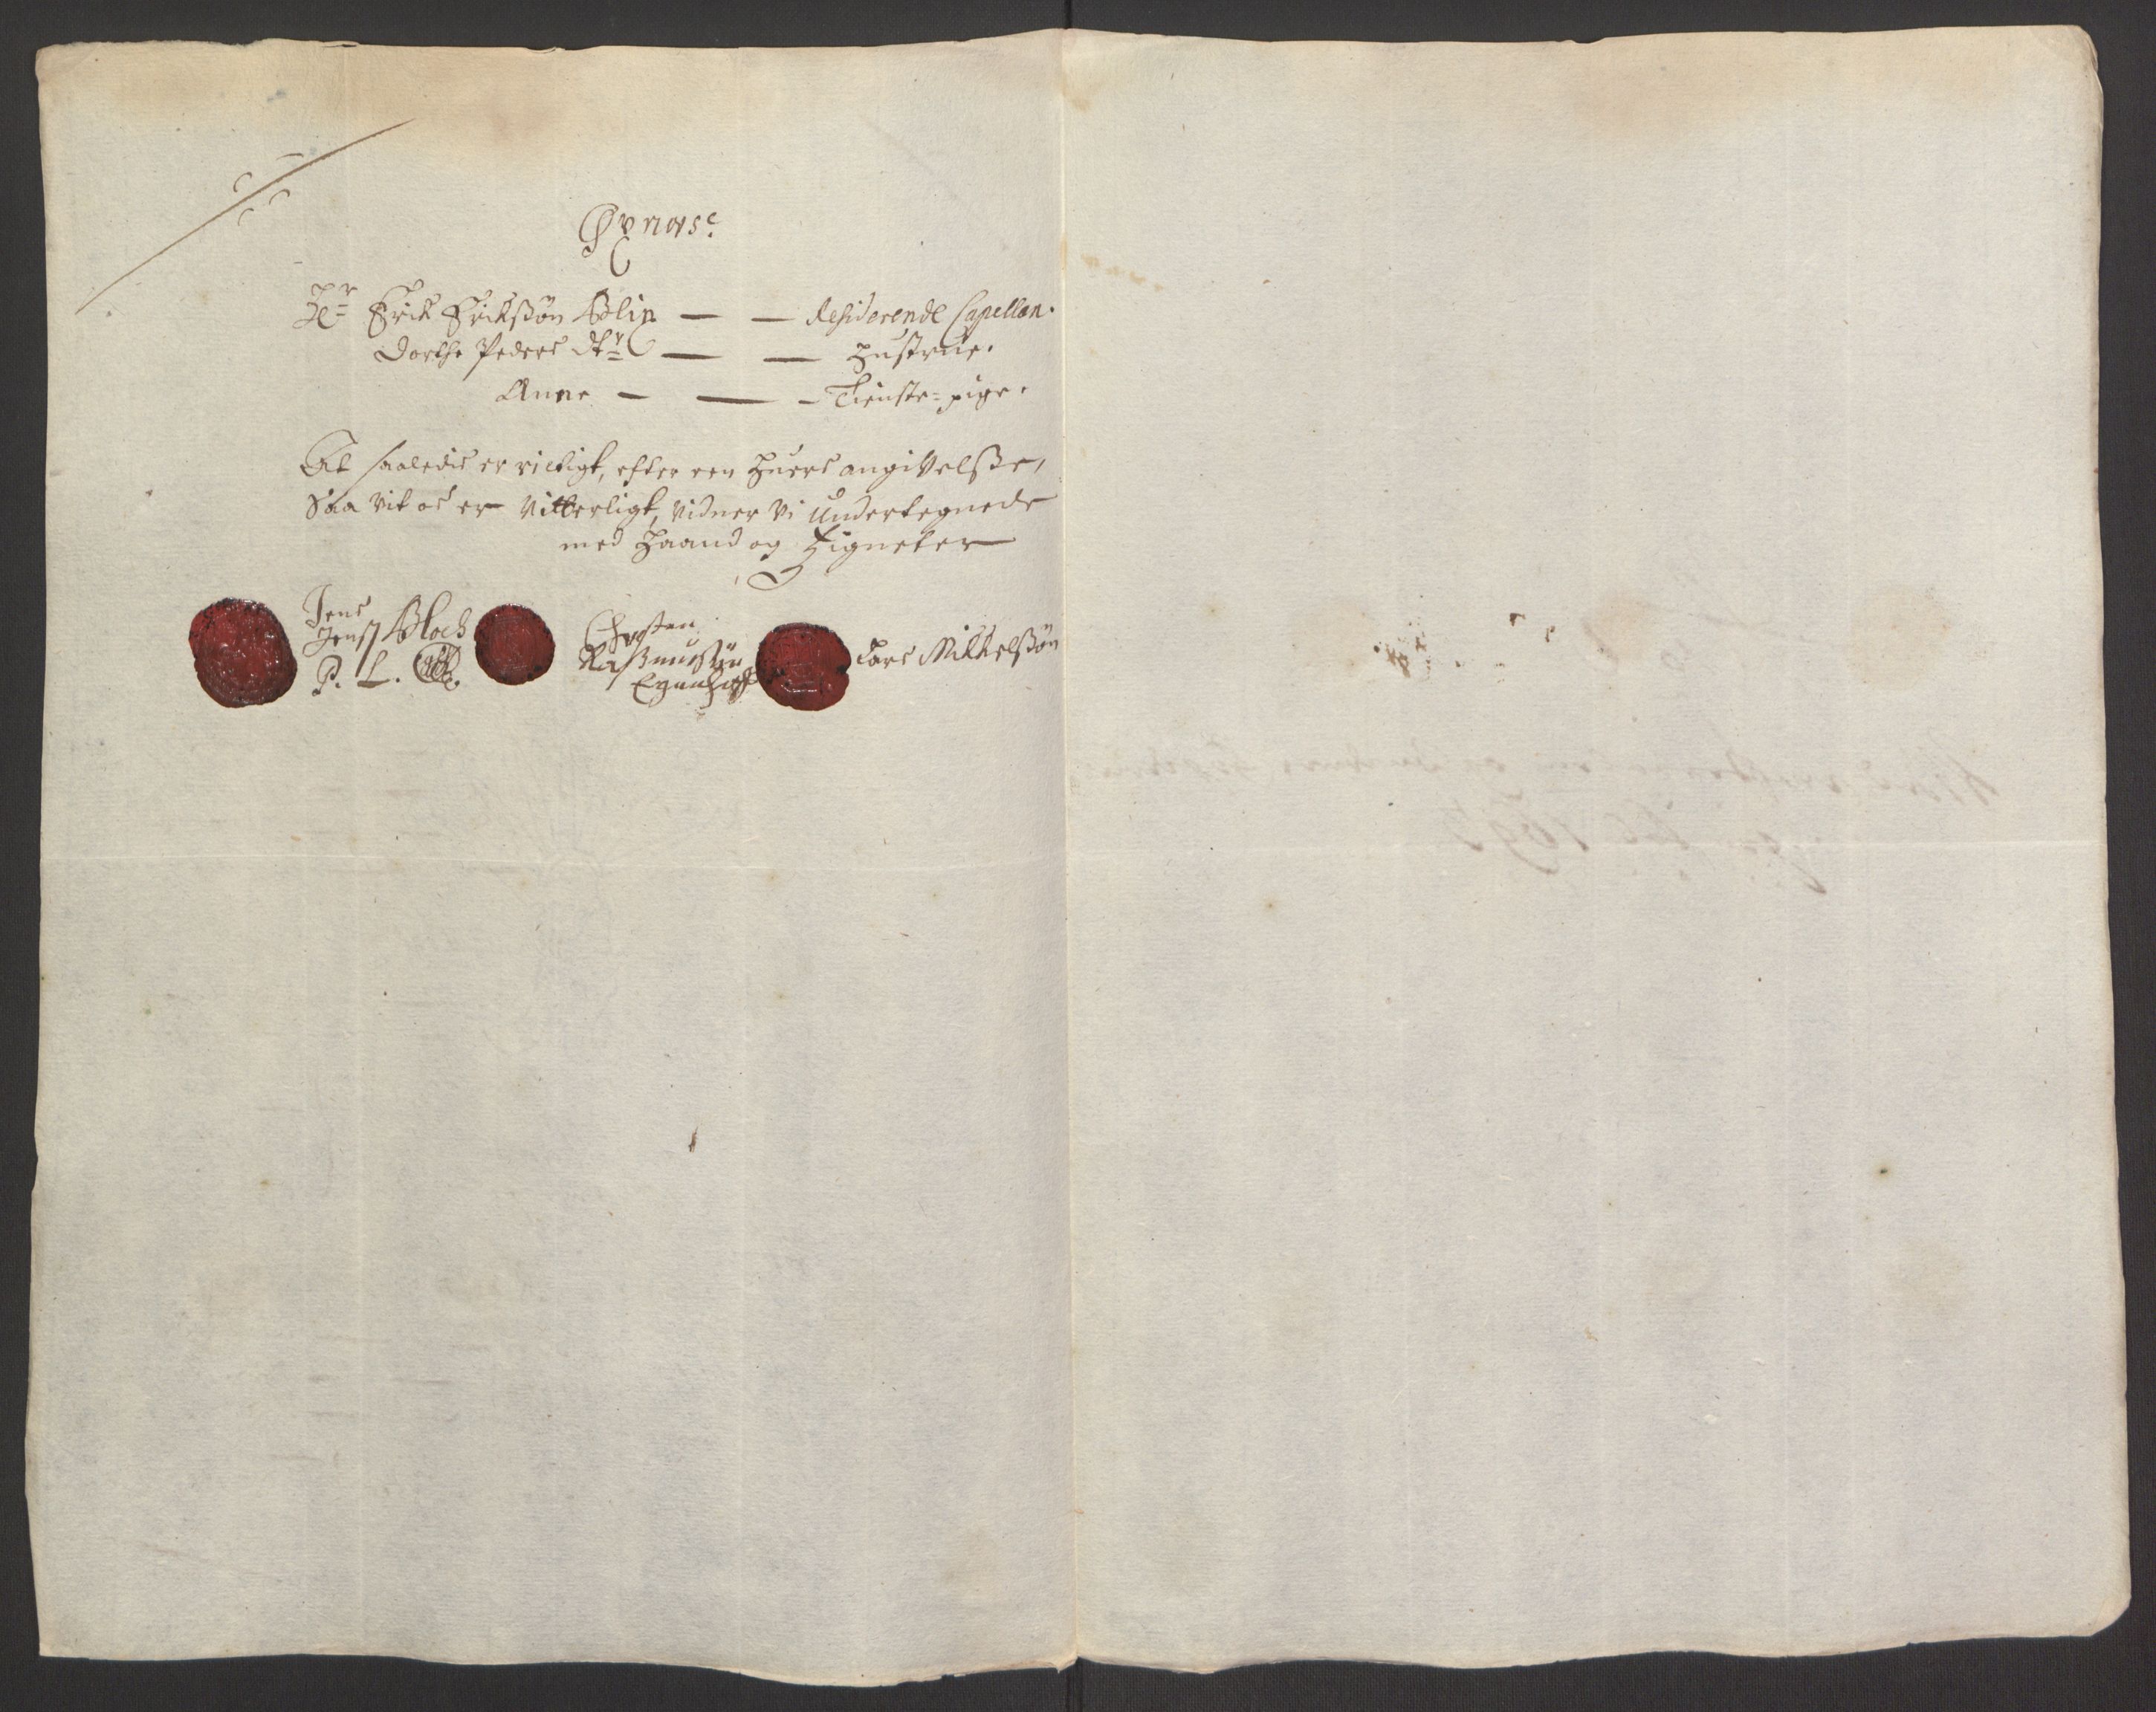 Øxnæs.
Hr Erick Erickssøn Blix — — Residerende Capellan.
Dorthe Peders dtr — — Hustrue.
Anne — — — Tieniste-pige.
At saaledis er rictigt, efter een Huers angivelsse,
Saa vit os er vitterligt, vidner vi undertegnede
med Haand og Zigneter
Jens
Jenss Bloch
P. L.
Christen
Rassmussøn
Egenhændig
Lars Mikkelssøn
1693